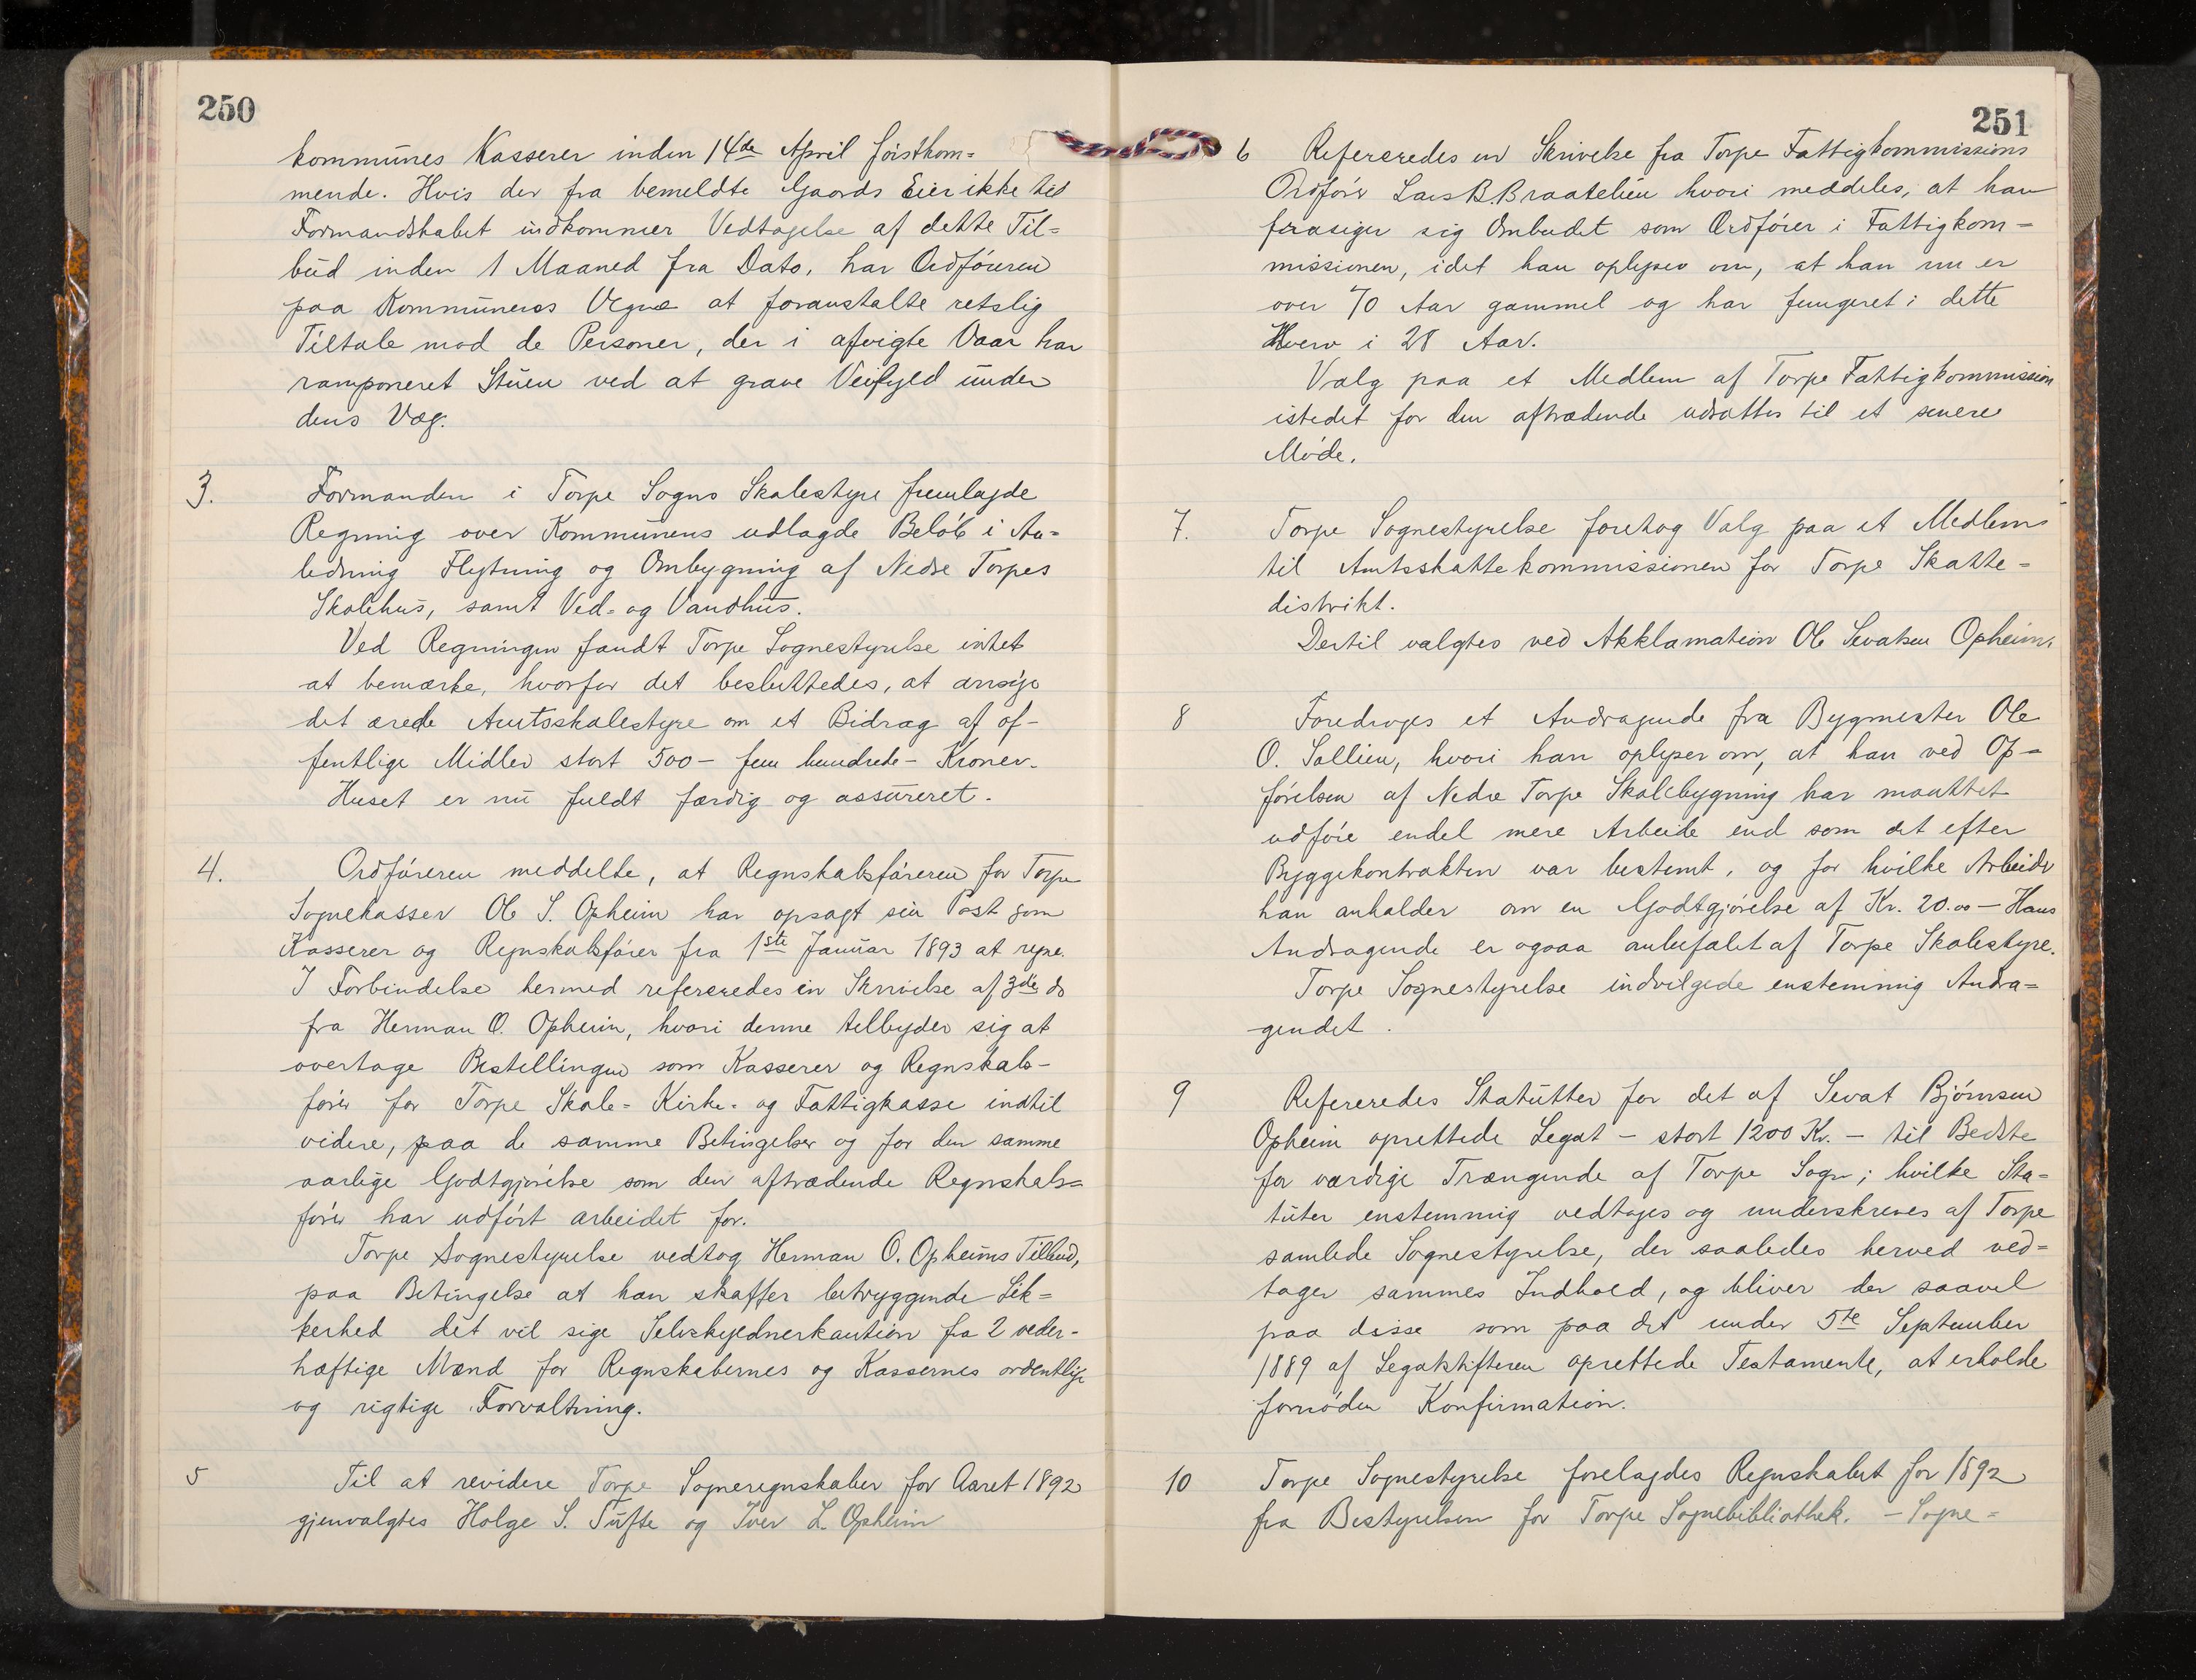 250
kommunes Kasserer inden 14de April førstkom=
mende. Hvis der fra bemeldte Gaards Eier ikke til
Formandskabet indkommer Vedtagelse af dette Til=
bud inden 1 Maaned fra Dato, har Ordføreren
paa Kommunens Vegne at foranstalte retslig
Tiltale mod de Personer, der i afvigte Vaar har
ramponeret Stuen ved at grave Veifyld under
dens Væg.
3. Formanden i Torpe Sogns Skolestyre fremlagde
Regning over Kommunens udlagde Beløb i An=
ledning Flytning og Ombygning af Nedre Torpes
Skolehus, samt Ved- og Vandhus.
Ved Regningen fandt Torpe Sognestyrelse intet
at bemærke, hvorfor det besluttedes, at ansøge
det ærede Amtsskolestyre om et Bidrag af of-
fentlige Midler stort 500 - fem hundrede - Kroner.
Huset er nu fuldt færdig og assureret.
4. Ordføreren meddelte, at Regnskabsføreren for Torpe
Sognekasser Ole S. Opheim har opsagt sin Post som
Kasserer og Regnskabsfører fra 1ste Januar 1893 at regne.
I Forbindelse hermed refereredes en Skrivelse af 3die ds
fra Herman O. Opheim, hvori denne tilbyder sig at
overtage Bestillingen som Kasserer og Regnskabs-
fører for Torpe Skole- Kirke- og Fattigkasse indtil
videre, paa de samme Betingelser og for den samme
aarlige Godtgjørelse som den aftrædende Regnskabs=
fører har udført arbeidet for.
Torpe Sognestyrelse vedtog Herman O. Opheims Tilbud,
paa Betingelse at han skaffer betryggende Sik=
kerhed det vil sige Selvskyldnerkaution fra 2 veder-
hæftige Mænd for Regnskabernes og Kassernes ordentlige
og rigtige Forvaltning.
5 Til at revidere Torpe Sogneregnskaber for Aaret 1892
gjenvalgtes Holge S. Tufte og Iver L. Opheim
251
6 Refereredes en Skrivelse fra Torpe Fattigkommissions
Ordfører Lars B. Braatelien hvori meddeles, at han
frasiger sig Ombudet som Ordfører i Fattigkom-
missionen, idet han oplyser om, at han nu er
over 70 Aar gammel og har fungeret i dette
Hverv i 28 Aar.
Valg paa et Medlem af Torpe Fattigkommission
istedet for den aftrædende udsættes til et senere
Møde.
7. Torpe Sognestyrelse foretog Valg paa et Medlem
til Amtsskattekommissionen for Torpe Skatte-
distrikt.
Dertil valgtes ved Akklamation Ole Sevatsen Opheim.
8 Foredroges et Andragende fra Bygmester Ole
O. Sollien, hvori han oplyser om, at han ved Op-
førelsen af Nedre Torpe Skolebygning har maattet
udføre endel mere Arbeide end som det efter
Byggekontrakten var bestemt, og for hvilke Arbeider
han anholder om en Godtgjørelse af Kr. 20.00 - Hans
Andragende er ogsaa anbefalet af Torpe Skolestyre.
Torpe Sognestyrelse indvilgede enstemmig Andra=
gendet.
9 Refereredes Statutter for det af Sevat Bjørnsen
Opheim oprettede Legat - stort 1200 Kr. - til Bedste
for værdige Trængende af Torpe Sogn; hvilke Sta=
tuter enstemmig vedtoges og underskreves af Torpe
samlede Sognestyrelse, der saaledes herved ved=
tager sammes Indhold, og bliver der saavel
paa disse som paa det under 5te September
1889 af Legatstifteren oprettede Testamente, at erholde
fornøden Konfirmation.
10 Torpe Sognestyrelse forelagdes Regnskabet for 1892
fra Bestyrelsen for Torpe Sognebibliothek. - Sogne=